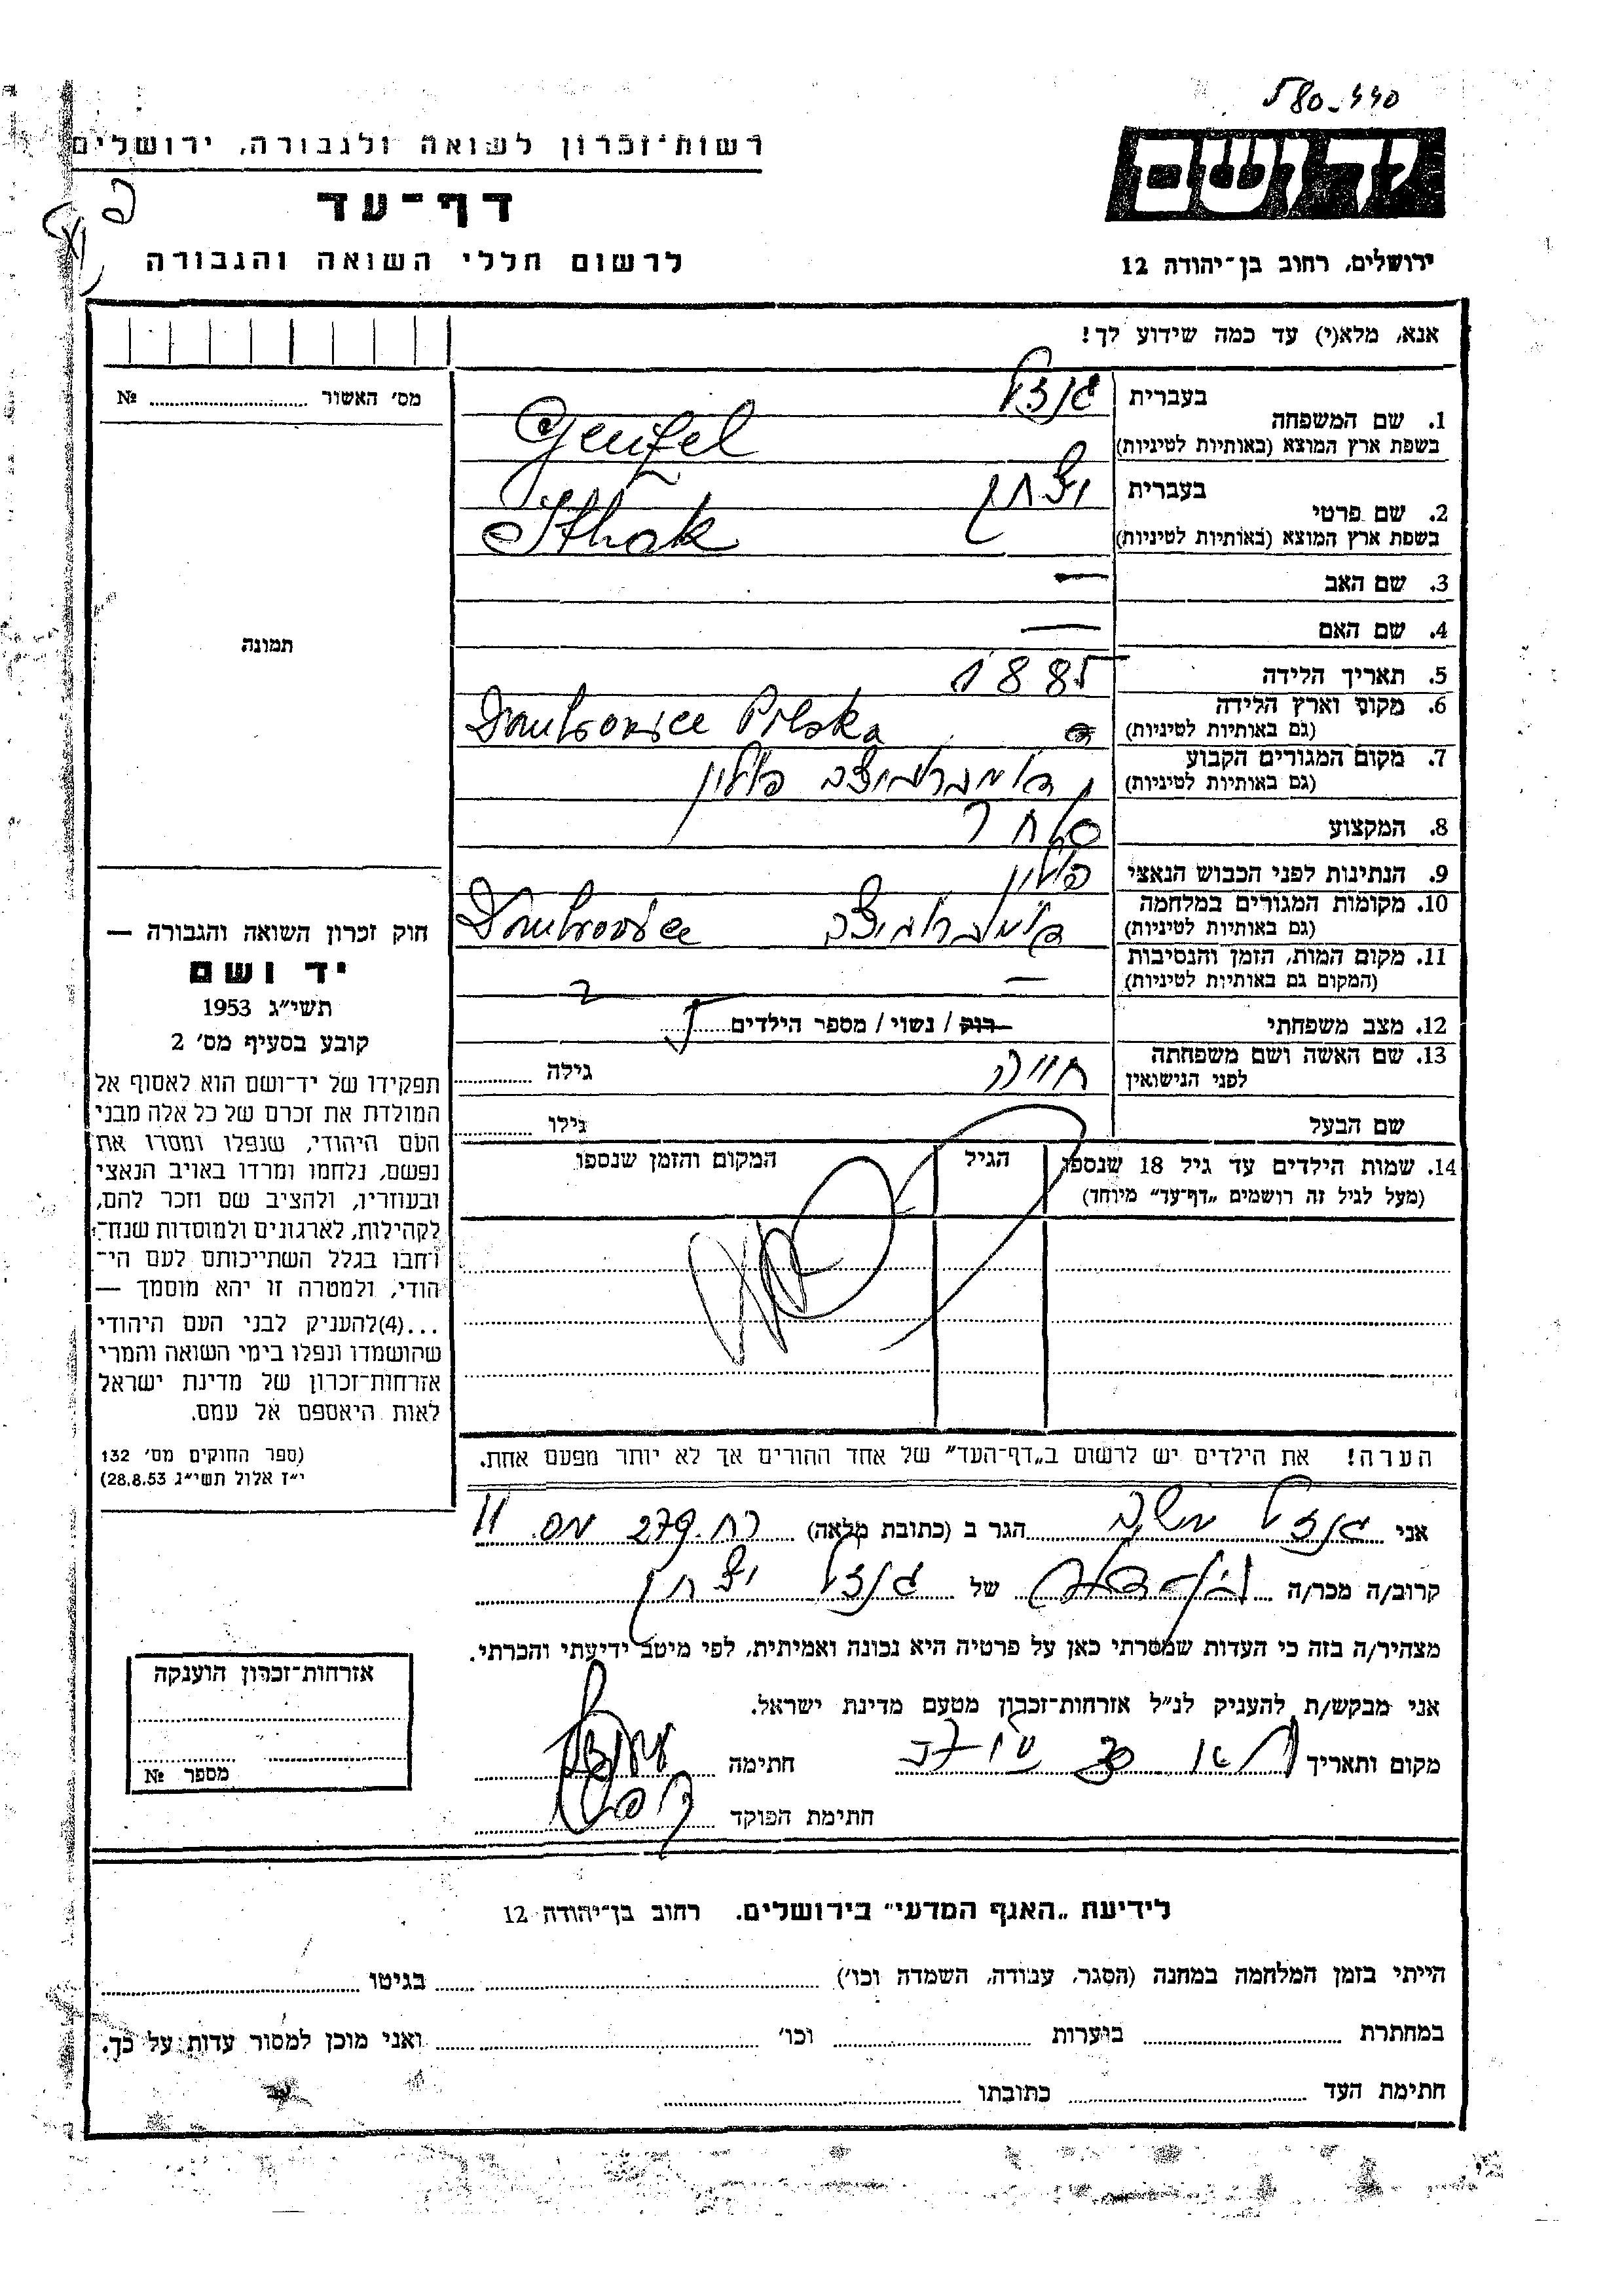 רשות־זכרון לשואה ולגבורה, ירושלים
דף־עד
לרשום חללי השואה והגבורה
ירושלים, רחוב בן־יהודה 12
אנא, מלא(י) עד כמה שידוע לך!
1. שם המשפחה
בעברית גנזל
בשפת ארץ המוצא (באותיות לטיניות)
2. שם פרטי
בעברית יצחק
בשפת ארץ המוצא (באותיות לטיניות) Ithak
3. שם האב —
4. שם האם —
5. תאריך הלידה 1885
6. מקום וארץ הלידה
(גם באותיות לטיניות) Polska
7. מקום המגורים הקבוע
(גם באותיות לטיניות) דומברוביצה פולין
8. המקצוע סוחר
9. הנתינות לפני הכבוש הנאצי פולין
10. מקומות המגורים במלחמה
(גם באותיות לטיניות) דומברוביצה
11. מקום המות, הזמן והנסיבות
(המקום גם באותיות לטיניות) —
12. מצב משפחתי רווק / נשוי / מספר הילדים
13. שם האשה ושם משפחתה
לפני הנישואין חייה גילה
שם הבעל גילו
14. שמות הילדים עד גיל 18 שנספו הגיל המקום והזמן שנספו
(מעל לגיל זה רושמים „דף־עד” מיוחד)
הערה! את הילדים יש לרשום ב„דף־העד” של אחד ההורים אך לא יותר מפעם אחת.
אני גנזל הגר ב (כתובת מלאה) רח. 279 מס. 11
קרוב/ה מכר/ה של גנזל יצחק
מצהיר/ה בזה כי העדות שמסרתי כאן על פרטיה היא נכונה ואמיתית, לפי מיטב ידיעתי והכרתי.
אני מבקש/ת להעניק לנ״ל אזרחות־זכרון מטעם מדינת ישראל.
מקום ותאריך חתימה
חתימת הפוקד
מס׳ האשור №
תמונה
חוק זכרון השואה והגבורה —
יד ושם
תשי״ג 1953
קובע בסעיף מס׳ 2
תפקידו של יד־ושם הוא לאסוף אל
המולדת את זכרם של כל אלה מבני
העם היהודי, שנפלו ומסרו את
נפשם, נלחמו ומרדו באויב הנאצי
ובעוזריו, ולהציב שם וזכר להם,
לקהילות, לארגונים ולמוסדות שנח־
רחבו בגלל השתייכותם לעם הי־
הודי, ולמטרה זו יהא מוסמך —
...(4)להעניק לבני העם היהודי
שהושמדו ונפלו בימי השואה והמרי
אזרחות־זכרון של מדינת ישראל
לאות היאספם אל עמם.
(ספר החוקים מס׳ 132
י״ז אלול תשי״ג 28.8.53)
אזרחות־זכרון הוענקה
מספר №
לידיעת „האגף המדעי” בירושלים. רחוב בן־יהודה 12
הייתי בזמן המלחמה במחנה (הסגר, עבודה, השמדה וכו׳) בגיטו
במחתרת ביערות וכו׳ ואני מוכן למסור עדות על כך.
חתימת העד כתובתו